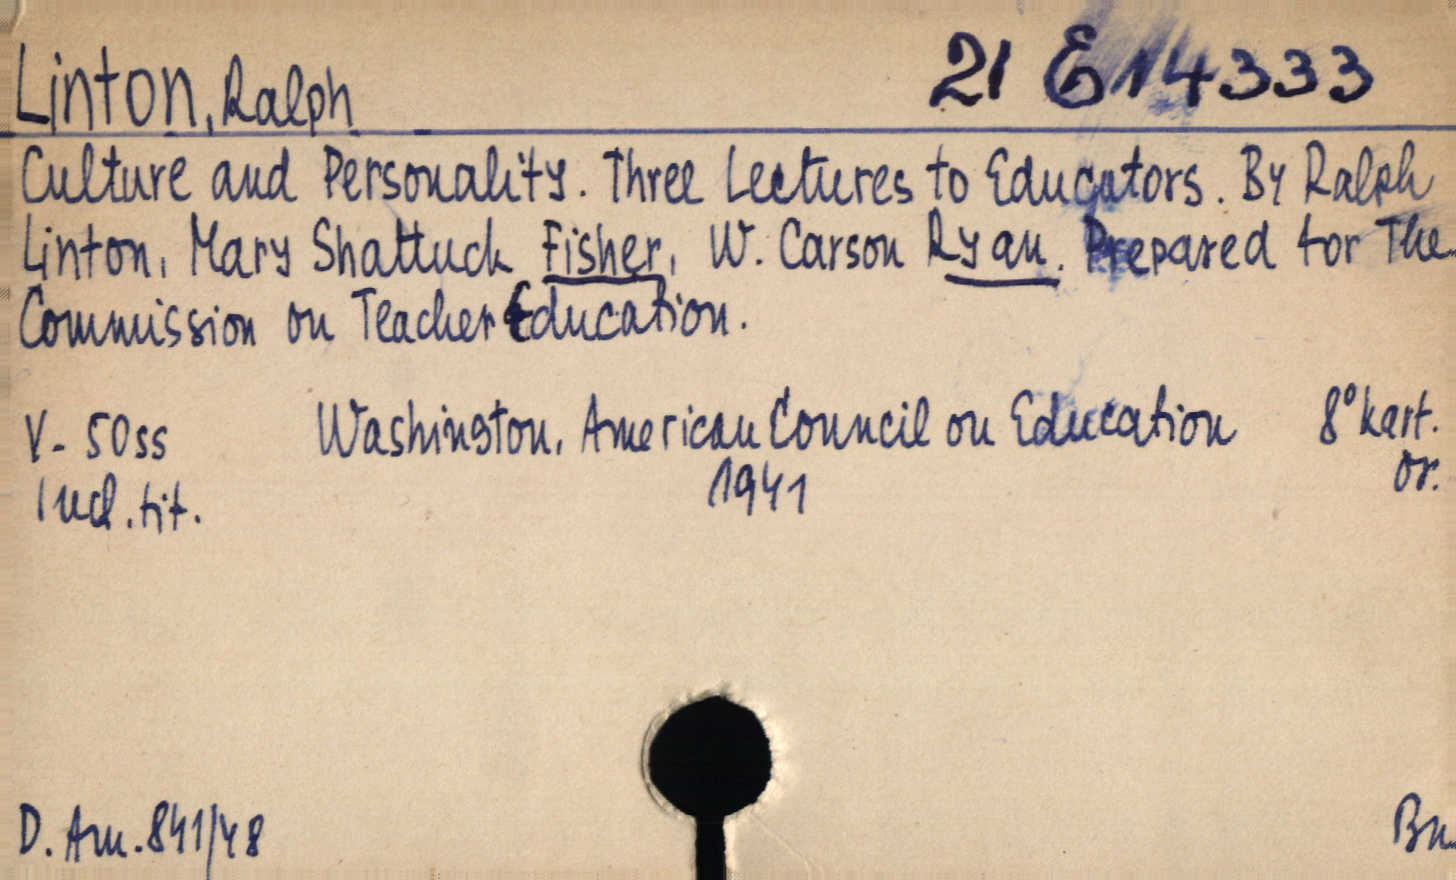 Linton, Ralph 21 E 14333
Culture and Personality. Three Lectures to Educators. By Ralph
Linton, Mary Shattuck Fisher, W. Carson Ryan. Prepared for The
Commission on Teacher Education.
V - 50 ss Washington, American Council on Education 8° kart.
Incl. tit. 1941 or.
D. Am. 841/48 Bn.